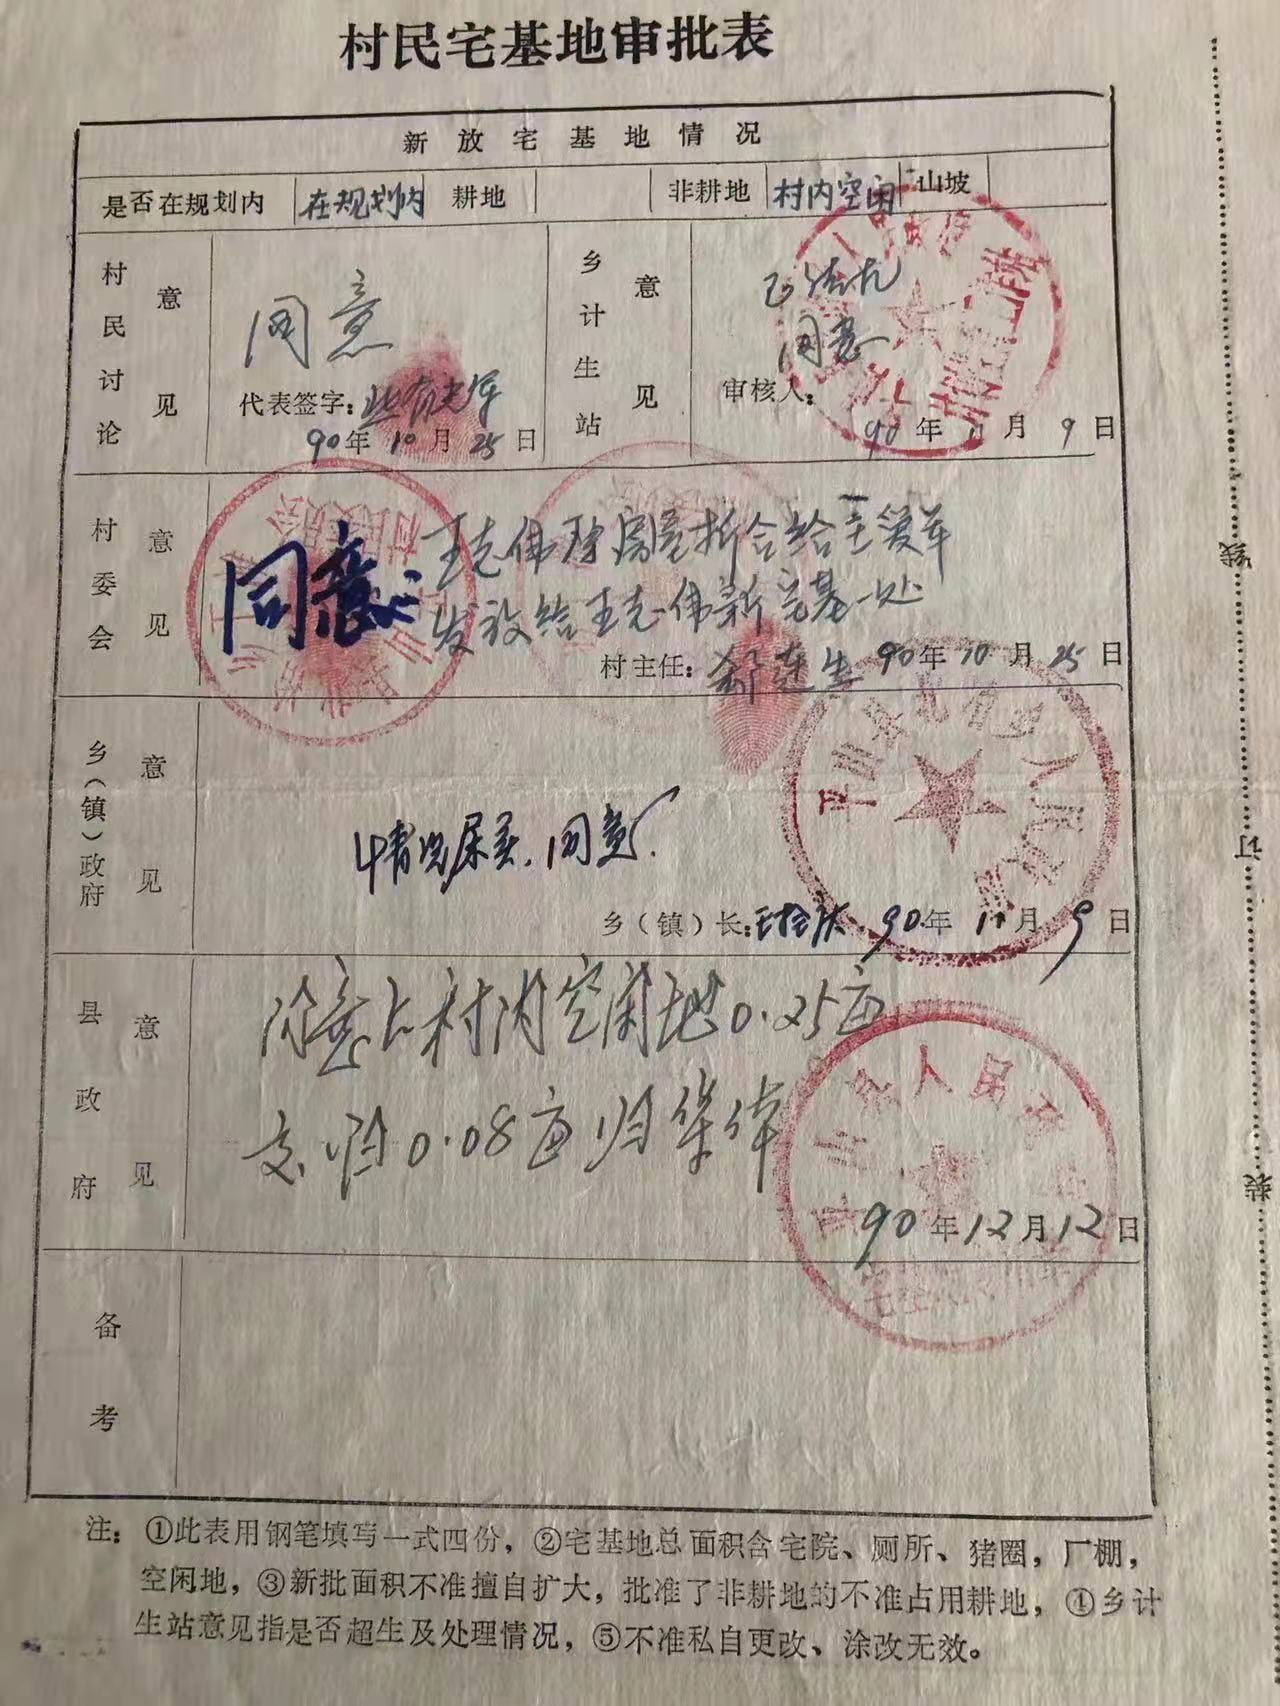 村民宅基地审批表
新放宅基地情况
是否在规划内 在规划内 耕地 非耕地 村内空闲 山坡
村民讨论意见
同意
代表签字:
90年10月25日
乡计生站意见
同意
审核人:
90年11月9日
村委会意见
同意
王克伟原房宅折合给王爱军
发放给王克伟新宅基一处
村主任: 90年10月25日
乡(镇)政府意见
情况属实,同意
乡(镇)长: 90年11月9日
县政府意见
同意占村内空闲地0.25亩
交旧0.08亩归集体
90年12月12日
备考
注:①此表用钢笔填写一式四份,②宅基地总面积含宅院、厕所、猪圈,厂棚,
空闲地,③新批面积不准擅自扩大,批准了非耕地的不准占用耕地,④乡计
生站意见指是否超生及处理情况,⑤不准私自更改、涂改无效。
线
订
装